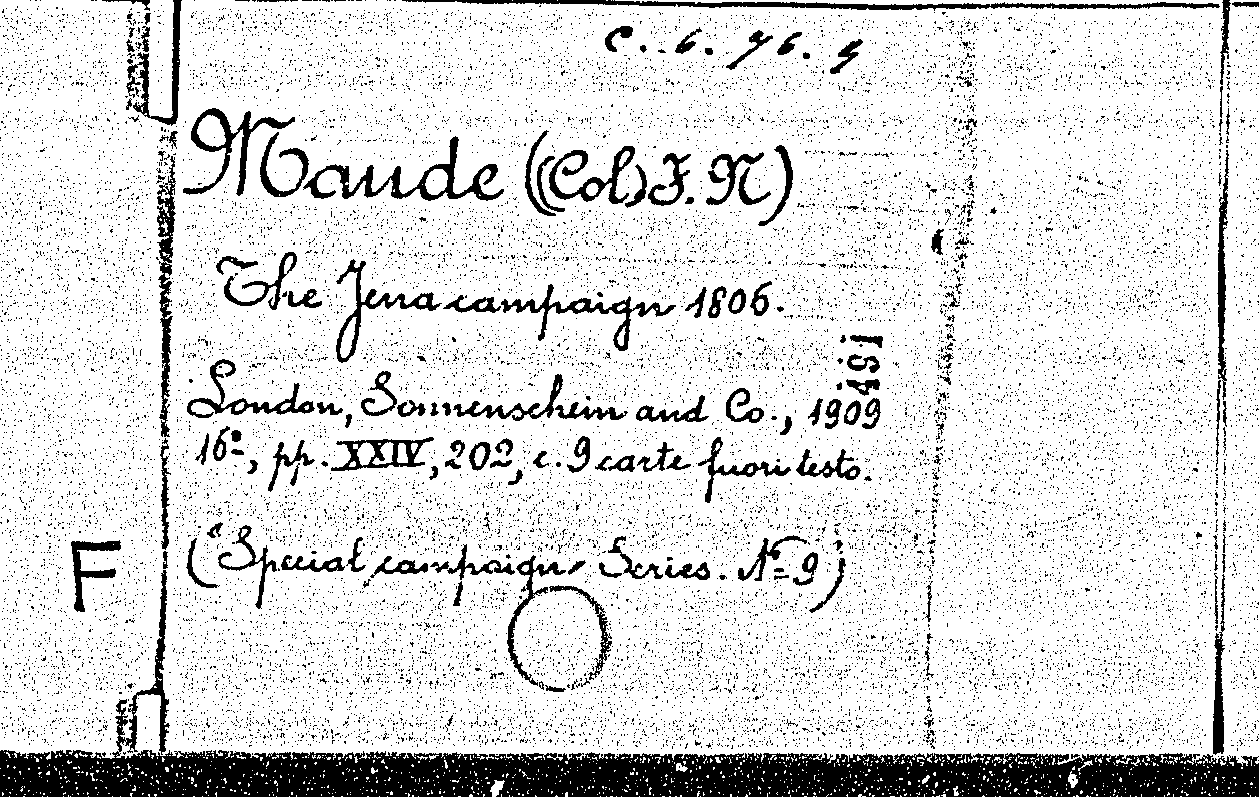 C. 6. 76. 9
Maude ((Col) F. N)
The Jena campaign 1806.
London, Sonnenschein and Co., 1909
16º, pp. XXIV, 202, c. 9 carte fuori testo.
F
("Special campaign" Series. Nº 9)